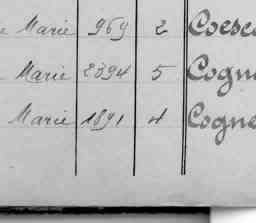 e Marie 969 2 Coesc
Marie 2394 5 Cogn
Marie 1891 4 Cogne